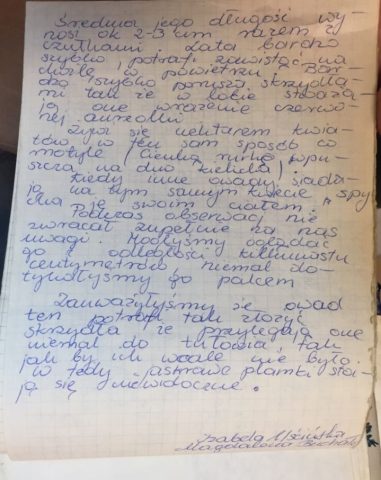 Średnia jego długość wy-
nosi ok 2-3 cm razem z
czułkami. Lata bardzo
szybko, potrafi zawisnąć na
chwilę w powietrzu. Bar-
dzo szybko porusza skrzydła-
mi tak że w locie stwarza-
ją one wrażenie czerwo-
nej aureolki
Żywi się nektarem kwia-
tów w ten sam sposób co
motyle (cienką rurkę wpu-
szcza na dno kielicha).
Kiedy inne owady siada-
ją na tym samym kwiecie, spy-
cha je swoim ciałem.
Podczas obserwacji nie
zwracał zupełnie na nas
uwagi. Mogłyśmy oglądać
go z odległości kilkunastu
centymetrów, niemal do-
tykałyśmy go palcem
Zauważyłyśmy że owad
ten potrafi tak złożyć
skrzydła że przylegają one
niemal do tułowia, tak
jak by ich wcale nie było.
W tedy jaskrawe plamki sta-
ją się niewidoczne.
Izabela
Magdalena